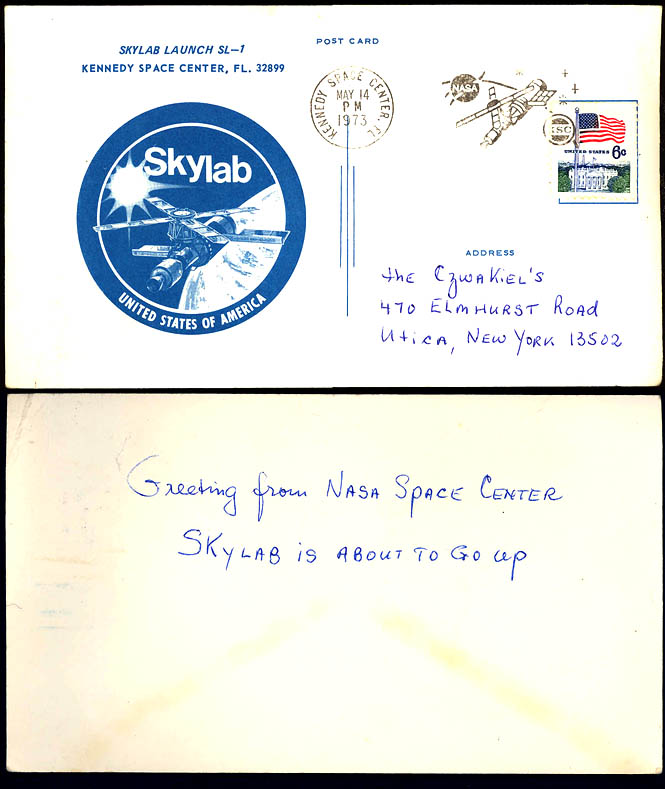 SKYLAB LAUNCH SL-1
KENNEDY SPACE CENTER, FL. 32899
POST CARD
KENNEDY SPACE CENTER, FL
MAY 14
PM
1973
NASA
KSC
UNITED STATES 6c
Skylab
UNITED STATES OF AMERICA
ADDRESS
the Czwakiel's
470 Elmhurst Road
Utica, New York 13502
Greeting from NASA Space Center
Skylab is about to go up